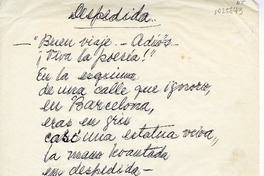 Despedida..
— "Buen viaje. — Adiós
¡Viva la poesía!"
En la esquina
de una calle que ignoro,
en Barcelona,
eras en gris
casi una estatua viva,
la mano levantada
en despedida —